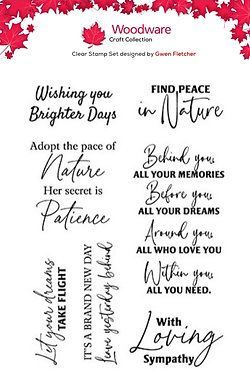 Woodware
Craft Collection
Clear Stamp Set designed by Gwen Fletcher
Wishing you
Brighter Days
FIND PEACE
in Nature
Adopt the pace of
Nature
Her secret is
Patience
Behind you,
ALL YOUR MEMORIES
Before you,
ALL YOUR DREAMS
Around you,
ALL WHO LOVE YOU
Within you,
ALL YOU NEED.
Let your dreams
TAKE FLIGHT
IT'S A BRAND NEW DAY
Leave yesterday behind
With
Loving
Sympathy